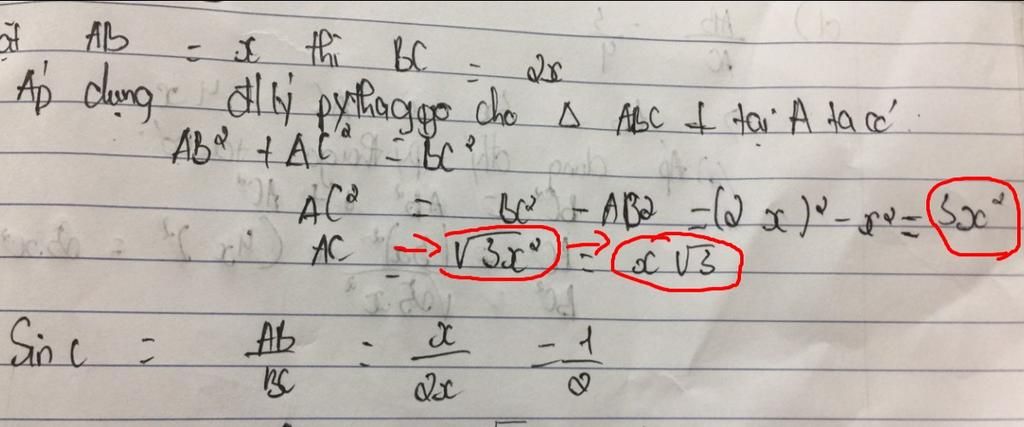 đặt AB = x thì BC = 2x
Áp dụng đ/lý pythaggo cho Δ ABC ⊥ tại A ta có
AB² + AC² = BC²
AC² = BC² - AB2 = (2 x)² - x² = 3x²
AC = √3x² = x √3
Sin C = AB/BC = x/2x = 1/2